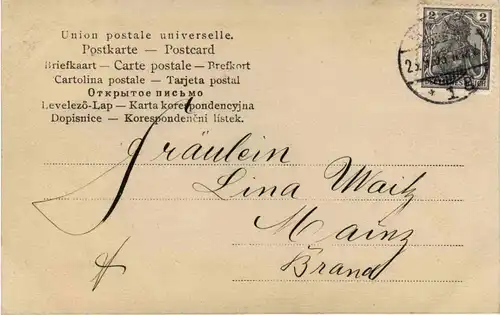 Union postale universelle.
Postkarte — Postcard
Briefkaart — Carte postale — Brefkort
Cartolina postale — Tarjeta postal
Открытое письмо
Levelező-Lap — Karta korespondencyjna
Dopisnice — Korespondenční lístek.
2 2
Fräulein
Lina Waitz
Mainz
Brand